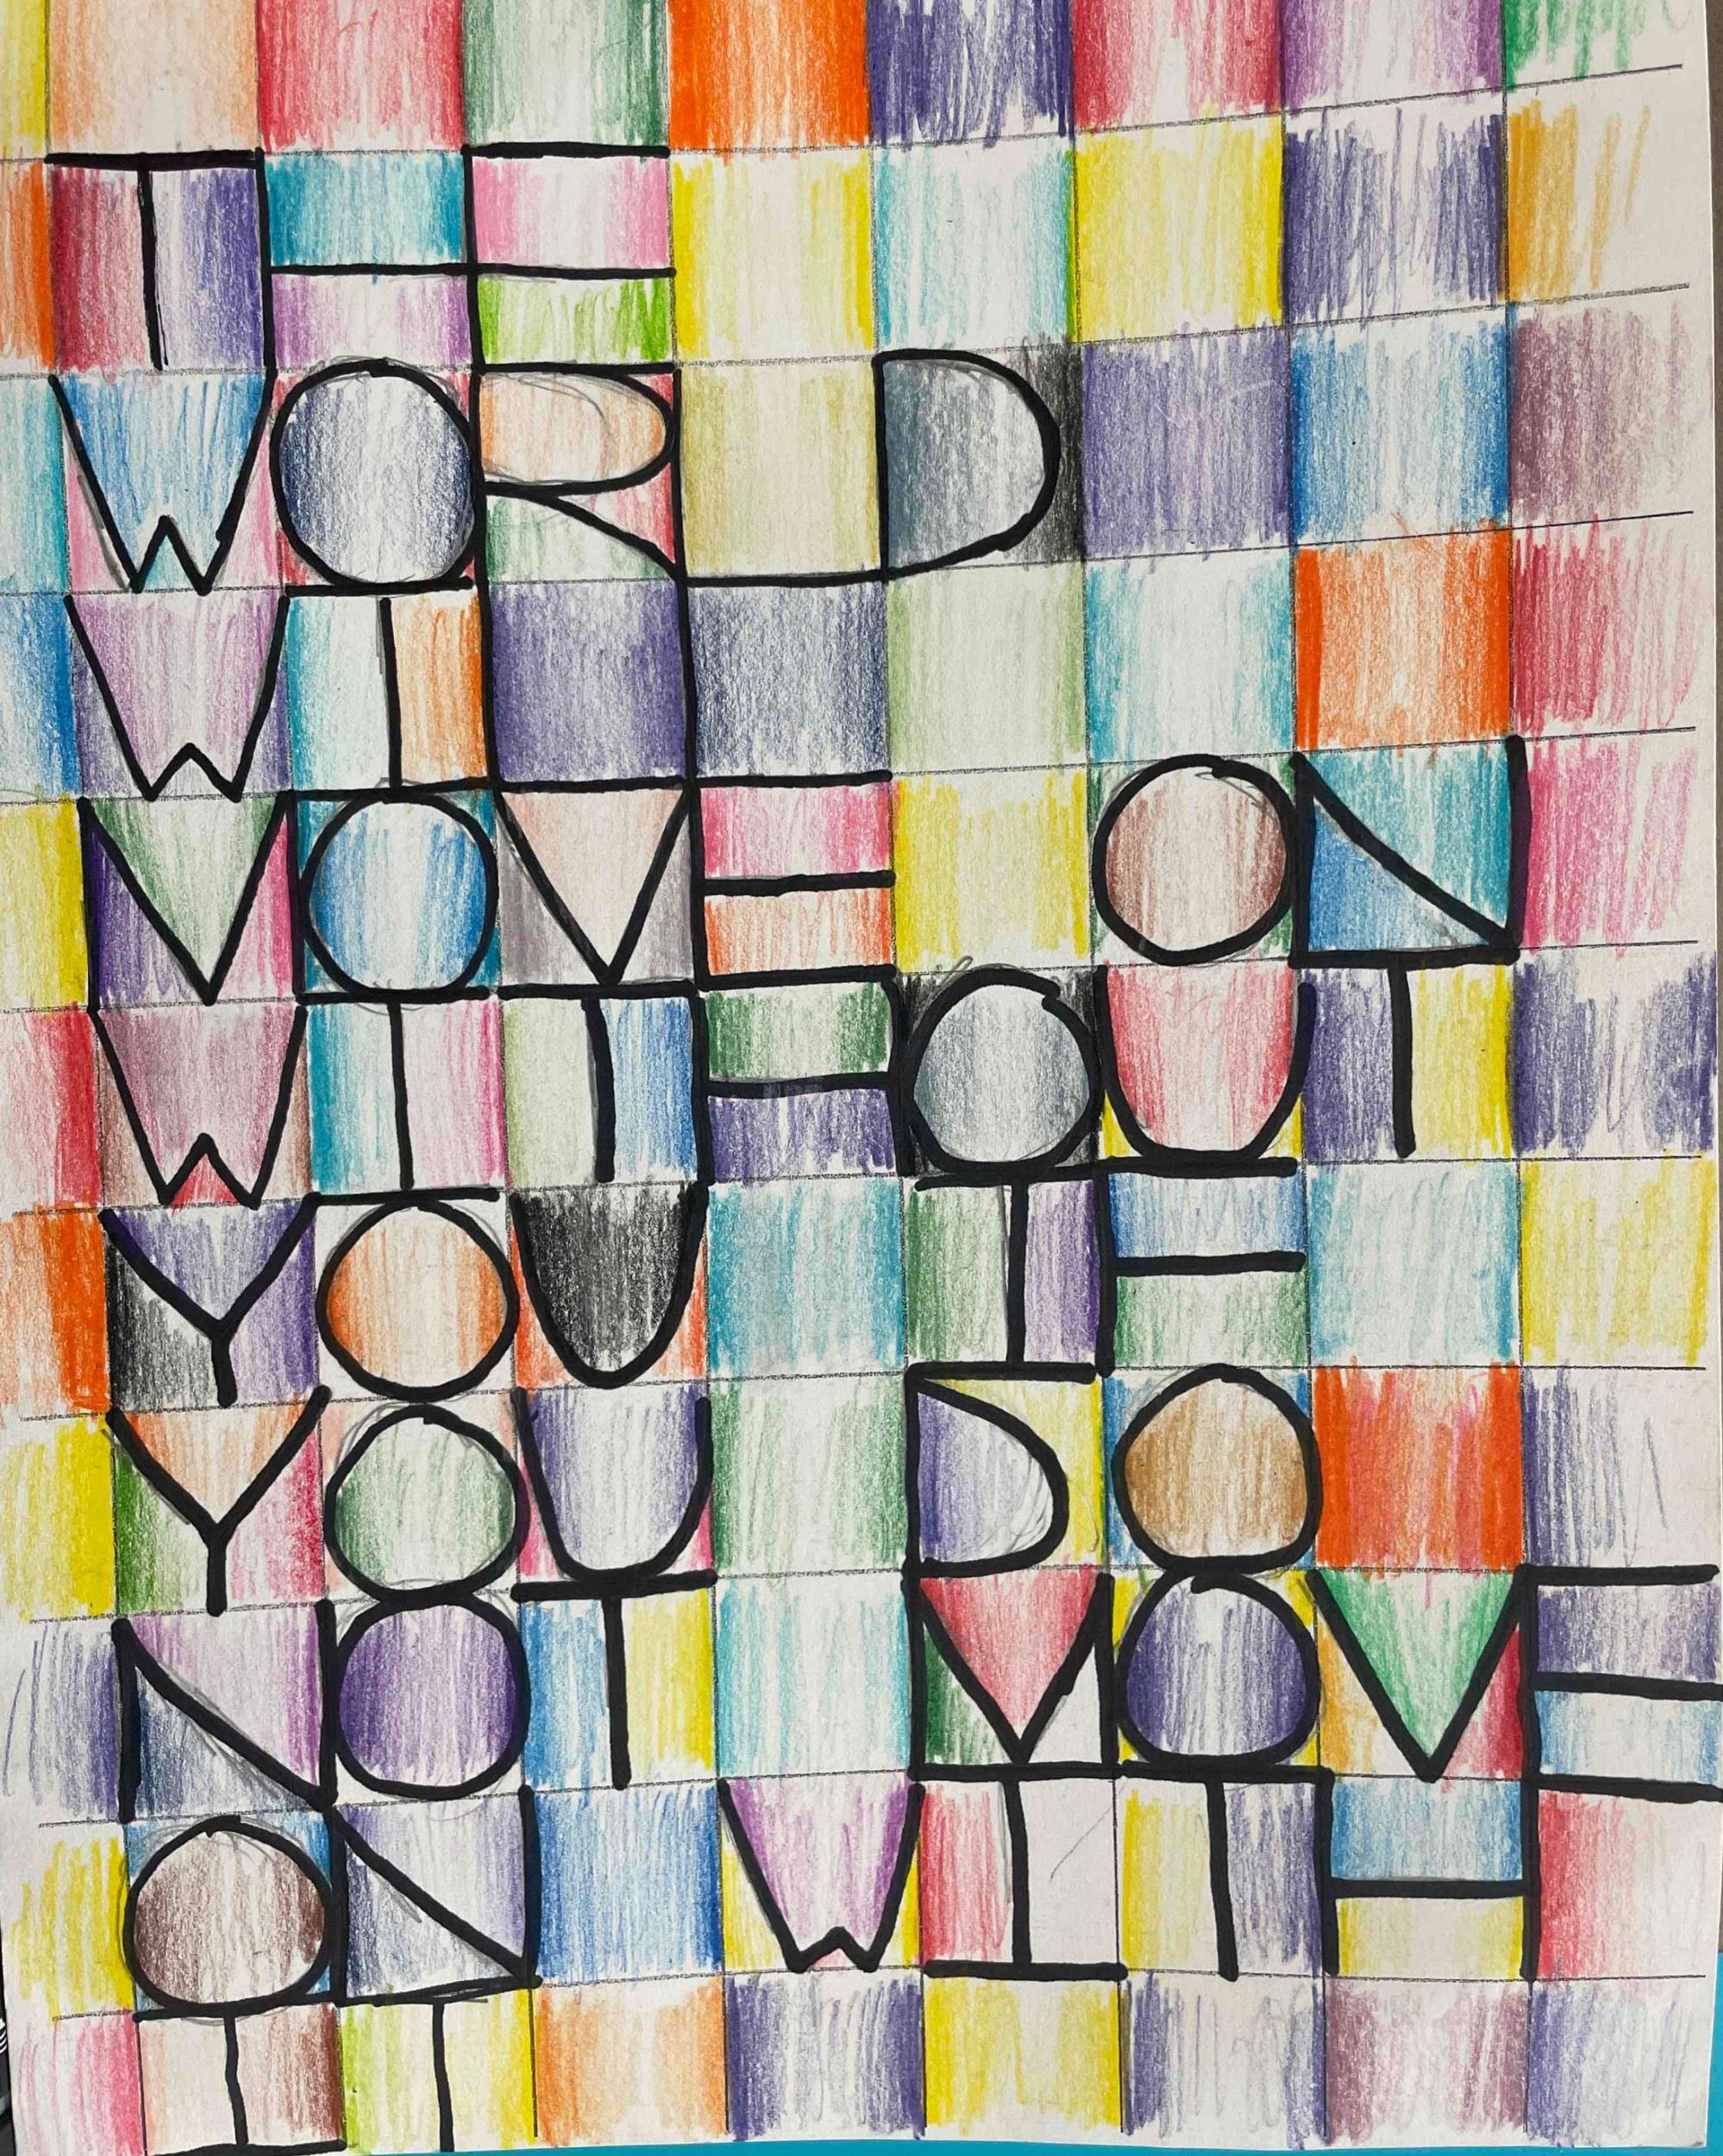 THE
WORLD
WILL
MOVE ON
WITHOUT
YOU IF
YOU DO
NOT MOVE
ON WITH
IT